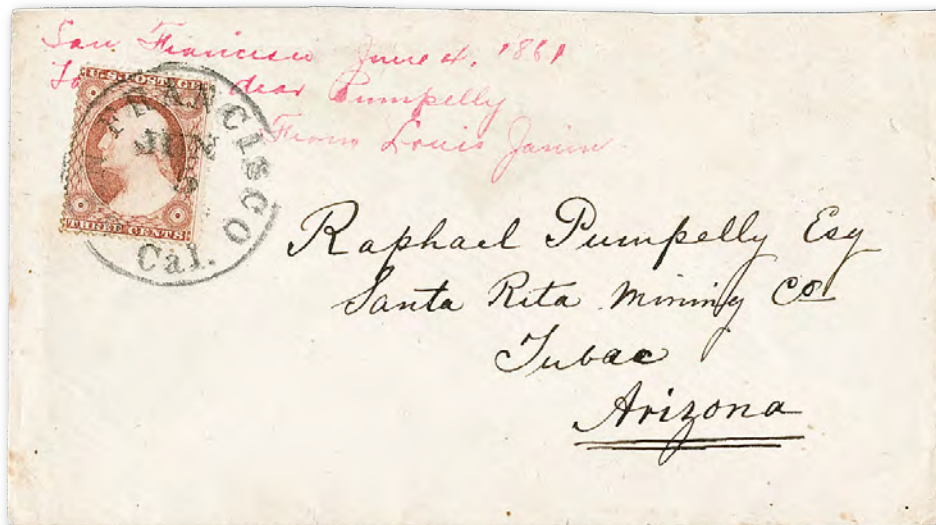 San Francisco June 4, 1861
dear Pumpelly
From Louis Janin
U.S. POSTAGE
THREE CENTS
FRANCISCO
JUN
5
Cal.
Raphael Pumpelly Esq
Santa Rita Mining Co
Tubac
Arizona